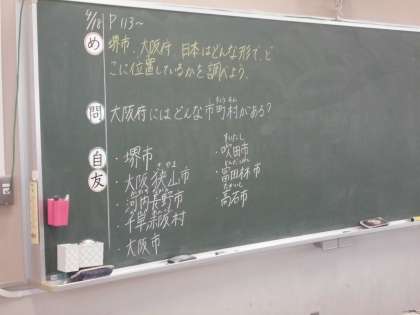 4/18 P113～
め 堺市、大阪府、日本はどんな形で、ど
こに位置しているかを調べよう。
問 大阪府にはどんな市町村がある?
自
友
・堺市
・大阪狭山市
・河内長野市
・千早赤阪村
・大阪市
・吹田市
・富田林市
高石市